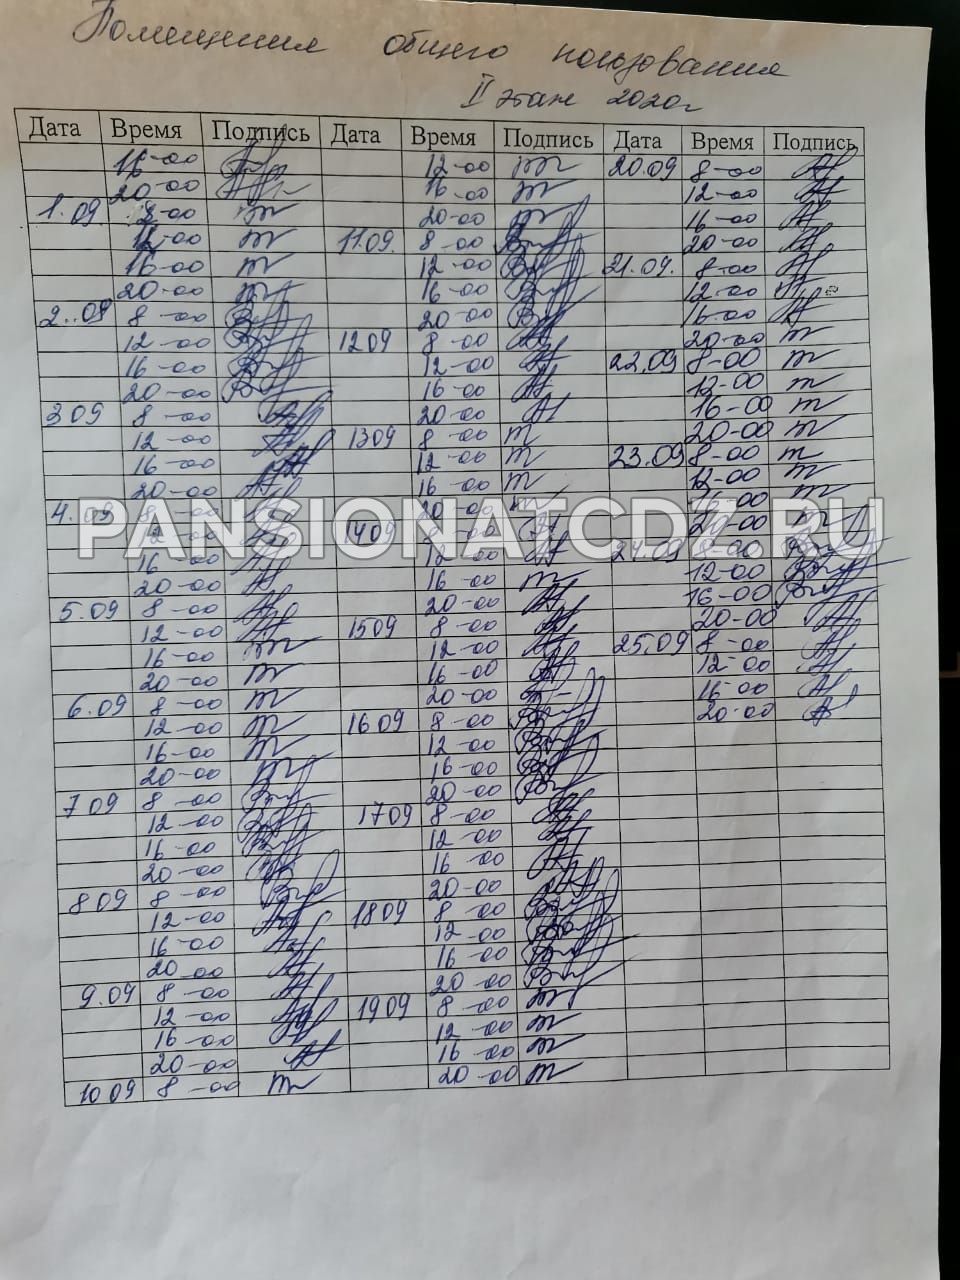 Помещения общего пользования
II этаж 2020г
Дата Время Подпись Дата Время Подпись Дата Время Подпись
16-00 12-00 20.09 8-00
20-00 16-00 12-00
1.09 8-00 20-00 16-00
12-00 11.09. 8-00 20-00
16-00 12-00 21.09. 8-00
20-00 16-00 12-00
2..09 8-00 20-00 16-00
12-00 1209 8-00 20-00
16-00 12-00 22.09 8-00
20-00 16-00 12-00
309 8-00 20-00 16-00
12-00 1309 8-00 20-00
16-00 12-00 23.09 8-00
20-00 16-00 12-00
4.09 8-00 20-00 16-00
PANSIONATCDZ.RU
12-00 1409 8-00 20-00
16-00 12-00 24.09 8-00
20-00 16-00 12-00
5.09 8-00 20-00 16-00
12-00 1509 8-00 20-00
16-00 12-00 25.09 8-00
20-00 16-00 12-00
6.09 8-00 20-00 16-00
12-00 1609 8-00 20-00
16-00 12-00
20-00 16-00
709 8-00 20-00
12-00 1709 8-00
16-00 12-00
20-00 16-00
809 8-00 20-00
12-00 1809 8-00
16-00 12-00
20-00 16-00
9.09 8-00 20-00
12-00 1909 8-00
16-00 12-00
20-00 16-00
1009 8-00 20-00